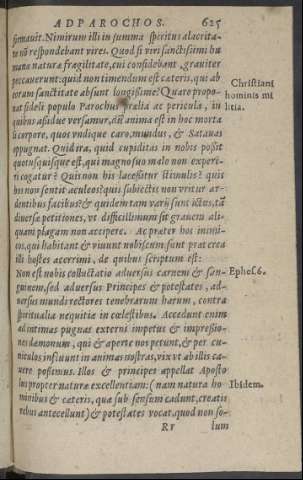 AD PAROCHOS. 625
firmauit. Nimirum illi in summa spiritus alacrita-
te nō respondebant vires. Quod si viri sanctissimi hu
mana natura fragilitate, cui considebant, grauiter
peccauerunt: quid non timendum est cæteris, qui ab
eorum sanctitate absunt longissime? Quare propo-
nat fideli populo Parochus prælia ac pericula, in
quibus assidue versamur, dū anima est in hoc morta
li corpore, quos vndique caro, mundus, & Satanas
oppugnat. Quid ira, quid cupiditas in nobis possit
quotusquisque est, qui magno suo malo non experi-
ri cogatur? Quis non his lacessitur stimulis? quis
hos non sentit aculeos? quis subiectis non vritur ar-
dentibus facibus? & quidem tam varij sunt ictus, tā
diuersæ petitiones, vt difficillimum sit grauem ali-
quam plagam non accipere. Ac præter hos inimi-
cos, qui habitant & viuunt nobiscum, sunt præterea
illi hostes acerrimi, de quibus scriptum est:
Non est nobis colluctatio aduersus carnem & san-
guinem, sed aduersus Principes & potestates, ad-
uersus mundi rectores tenebrarum harum, contra
spiritualia nequitiæ in cœlestibus. Accedunt enim
ad intimas pugnas externi impetus & impressio-
nes dæmonum, qui & aperte nos petunt, & per cu-
niculos influunt in animas nostras, vix vt ab illis ca-
uere possimus. Illos & principes appellat Aposto
lus propter naturæ excellentiam: (nam natura ho
minibus & cæteris, quæ sub sensum cadunt, creatis
rebus antecellunt) & potestates vocat, quod non so-
Rr lum
Christiani
hominis mi
litia.
Ephes. 6.
Ibidem.